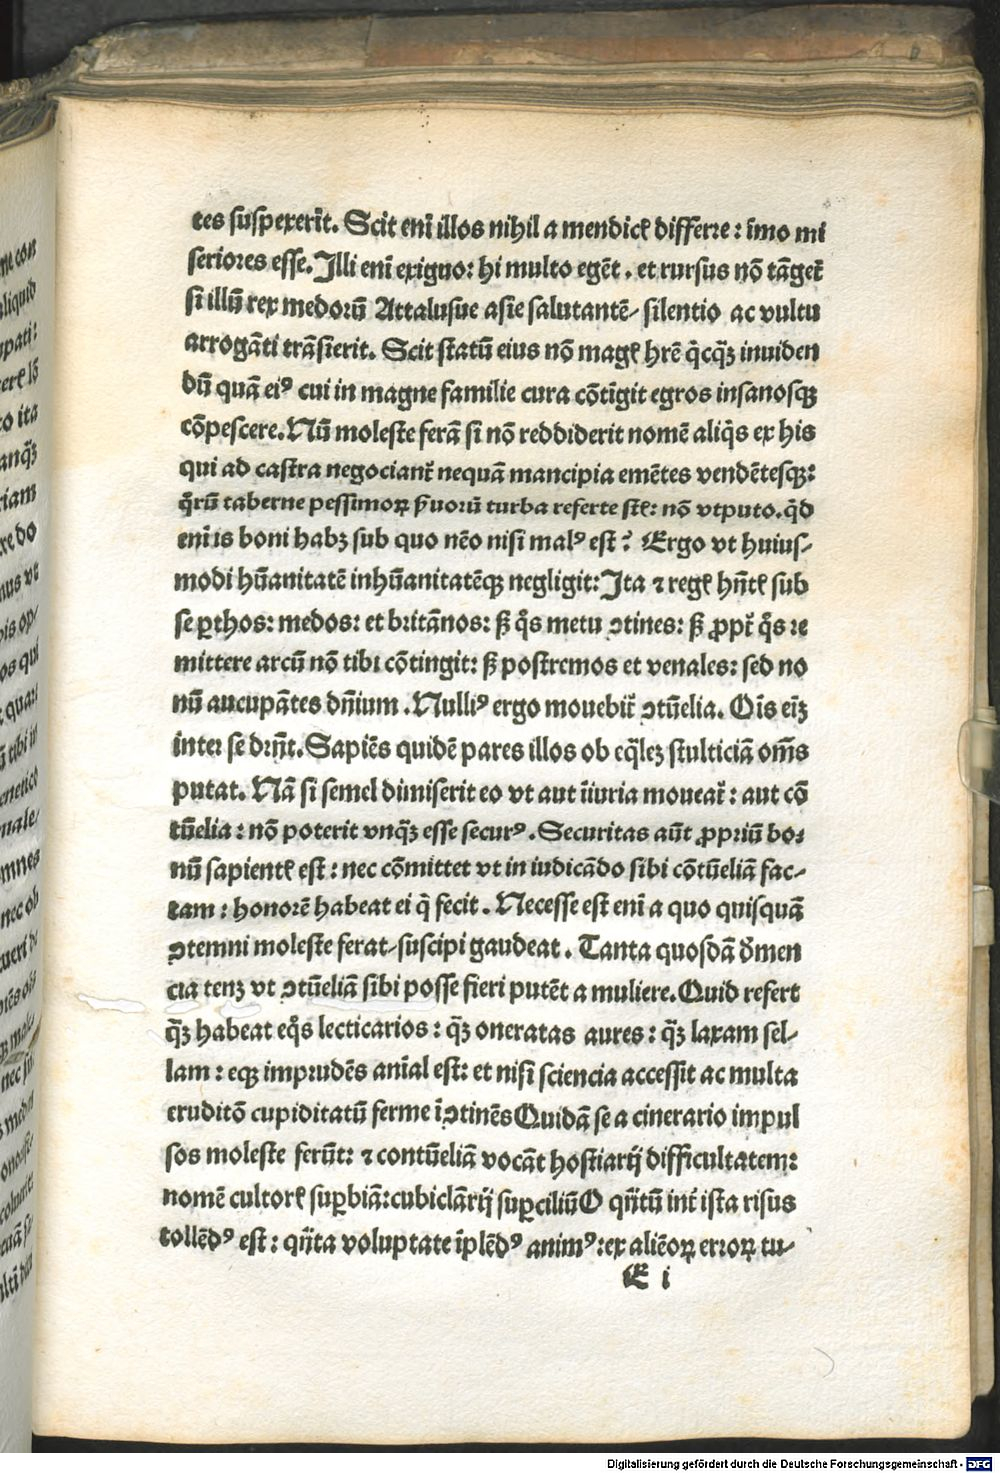 tes suspexerīt. Scit enī illos nihil a mendicꝭ differre: īmo mi
seriores esse. Illi enī exiguo: hi multo egēt. et rursus nō tāgeť
si illū rex medorū Attalusue asie salutantē/ silentio ac vultu
arrogāti trāsierit. Scit statū eius nō magꝭ hrē q̄cq̄ꝫ inuiden
dū quā eiꝰ cui in magne familie cura cōtīgit egros insanosqꝫ
cōpescere. Nū moleste ferā si nō reddiderit nomē aliq̄s ex his
qui ad castra negociant᷑ nequā mancipia emētes vendētesqꝫ:
q̄rū taberne pessimoꝝ ẜuorū turba referte st̄: nō vtputo. qď
enī is boni habꝫ sub quo nēo nisi malꝰ est? Ergo vt huius/
modi hūanitatē inhūanitatēqꝫ negligit: Ita ⁊ regꝭ hn̄tꝭ sub
se ꝑthos: medos: et britānos: ẜꝫ q̄s metu ꝯtines: ẜꝫ ꝓpť q̄s re
mittere arcū nō tibi cōtingit: ẜꝫ postremos et venales: sed no
nū aucupātes dn̄ium. Nulliꝰ ergo mouebit᷑ ꝯtūelia. Oīs eīꝫ
inter se drn̄t. Sapiēs quidē pares illos ob eq̄leꝫ stulticiā om̄s
putat. Nā si semel dimiserit eo vt aut īiuria moueat᷑: aut cō
tūelia: nō poterit vnq̄ꝫ esse securꝰ. Securitas aūt ꝓpriū bo:
nū sapientꝭ est: nec cōmittet vt in iudicādo sibi cōtūeliā fac/
tam: honorē habeat ei q̄ fecit. Necesse est enī a quo quisquā
ꝯtemni moleste ferat/ suscipi gaudeat. Tanta quosdā ďmen
cia tenꝫ vt ꝯtūeliā sibi posse fieri putēt a muliere. Quid refert
q̄ꝫ habeat eq̄s lecticarios: q̄ꝫ oneratas aures: q̄ꝫ laxam sel/
lam: eqꝫ imprudēs anīal est: et nisi sciencia accessit ac multa
eruditō cupiditatū ferme īꝯtinēs Quidā se a cinerario impul
sos moleste ferūt: ⁊ contūeliā vocāt hostiarij difficultatem:
nomē cultorꝭ suꝑbiā: cubiclārij suꝑciliū O qn̄tū int᷑ ista risus
tollēdꝰ est: qn̄ta voluptate īplēdꝰ animꝰ: ex aliēoꝝ erroꝝ tu/
E i
Digitalisierung gefördert durch die Deutsche Forschungsgemeinschaft - DFG